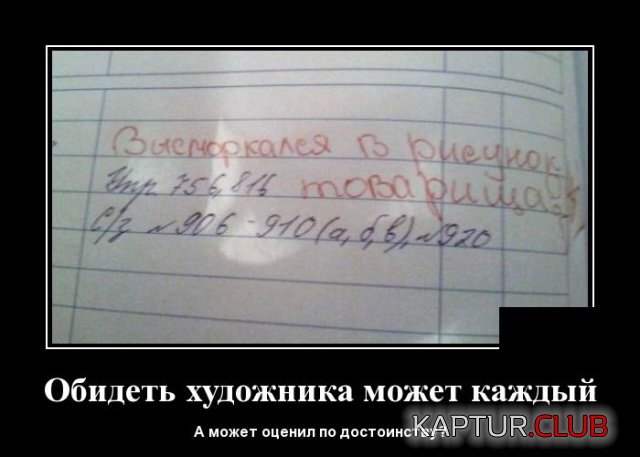 Высморкался в рисунок
Упр 756, 816 товарища
с/з №906 - 910 (а, б, в), №920
Обидеть художника может каждый
А может оценил по достоинству?
KAPTUR.CLUB